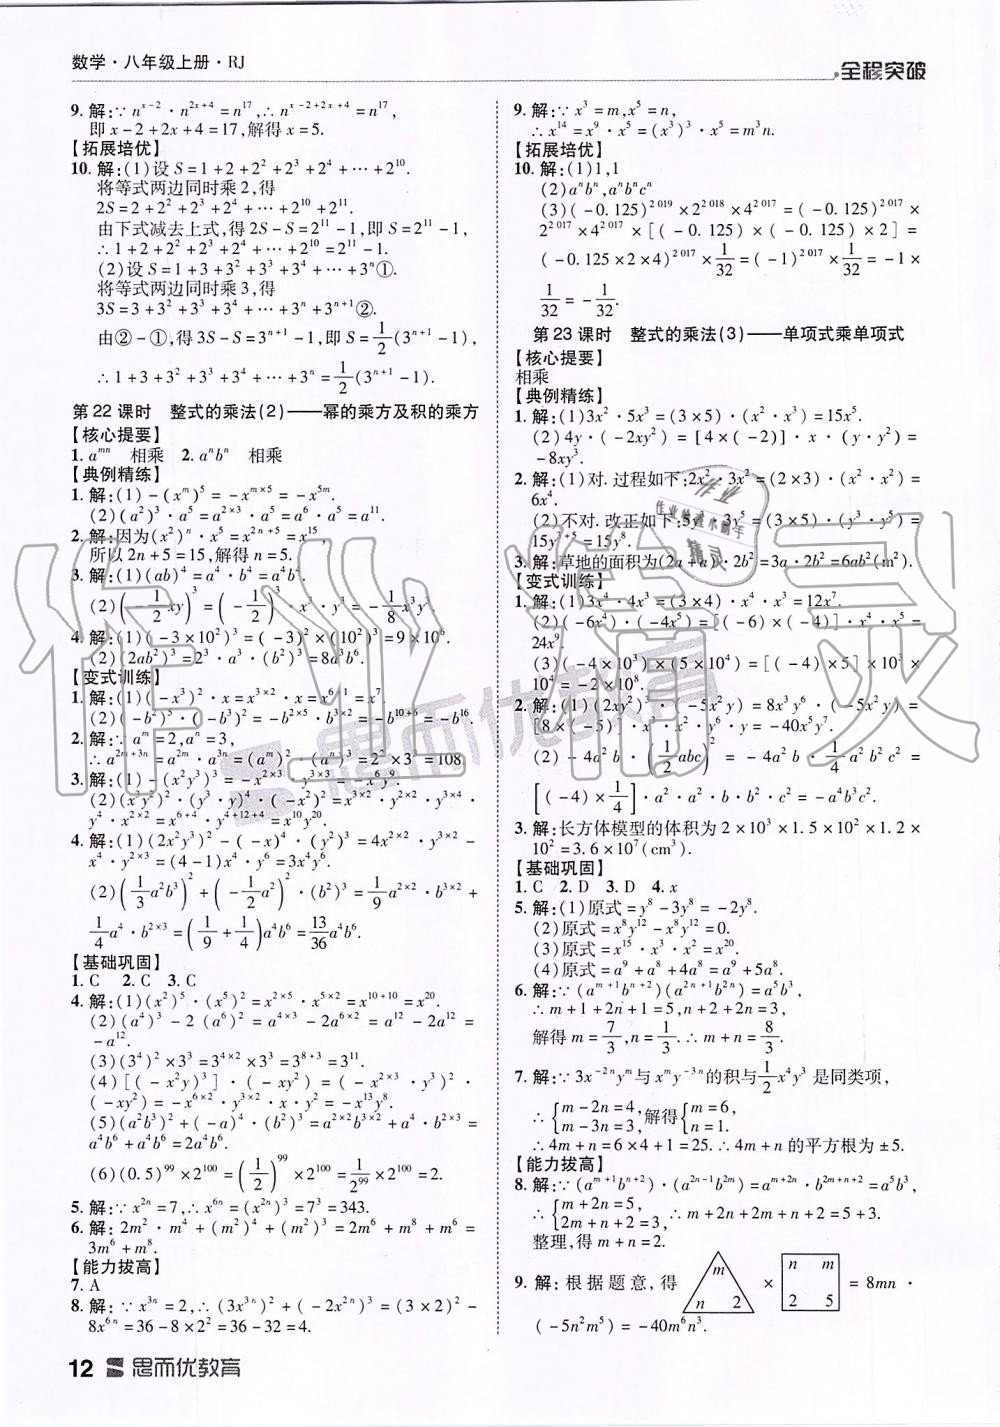 数学·八年级上册·RJ
全程突破
9. 解:∵n^{x-2}·n^{2x+4}=n^{17},∴n^{x-2+2x+4}=n^{17},
即x-2+2x+4=17,解得x=5.
【拓展培优】
10. 解:(1)设S=1+2+2²+2³+2⁴+…+2^{10}.
将等式两边同时乘2,得
2S=2+2²+2³+2⁴+…+2^{10}+2^{11}.
由下式减去上式,得2S-S=2^{11}-1,即S=2^{11}-1,
∴1+2+2²+2³+2⁴+…+2^{10}=2^{11}-1.
(2)设S=1+3+3²+3³+3⁴+…+3ⁿ①.
将等式两边同时乘3,得
3S=3+3²+3³+3⁴+…+3ⁿ+3^{n+1}②.
由②-①,得3S-S=3^{n+1}-1,即S=\frac{1}{2}(3^{n+1}-1),
∴1+3+3²+3³+3⁴+…+3ⁿ=\frac{1}{2}(3^{n+1}-1).
第22课时 整式的乘法(2)——幂的乘方及积的乘方
【核心提要】
1. a^{mn} 相乘 2. aⁿbⁿ 相乘
【典例精练】
1. 解:(1)-(x^m)⁵=-x^{m×5}=-x^{5m}.
(2)(a²)³·a⁵=a^{2×3}·a⁵=a⁶·a⁵=a^{11}.
2. 解:因为(x²)ⁿ·x⁵=x^{2n+5}=x^{15},
所以2n+5=15,解得n=5.
3. 解:(1)(ab)⁴=a⁴·b⁴=a⁴b⁴.
(2)(-\frac{1}{2}xy)³=(-\frac{1}{2})³·x³·y³=-\frac{1}{8}x³y³.
4. 解:(1)(-3×10²)³=(-3)²×(10²)³=9×10⁶.
(2)(2ab²)³=2³·a³·(b²)³=8a³b⁶.
【变式训练】
1. 解:(1)(-x³)²·x=x^{3×2}·x=x^{6+1}=x⁷.
(2)(-b²)⁵·(-b³)²=-b^{2×5}·b^{3×2}=-b^{10+6}=-b^{16}.
2. 解:∵a^m=2,aⁿ=3,
∴a^{2m+3n}=a^{2m}·a^{3n}=(a^m)²·(aⁿ)³=2²×3³=108.
3. 解:(1)-(x²y³)³=-x^{2×3}y^{3×3}=-x⁶y⁹.
(2)(x³y²)²·(y³·y)⁴·(-x²)²=x^{3×2}·y^{2×2}·y^{3×4}·
y⁴·x^{2×2}=x^{6+4}·y^{4+12+4}=x^{10}y^{20}.
4. 解:(1)(2x²y³)²-(-x)⁴·(y²)³=4x^{2×2}·y^{3×2}-
x⁴·y^{2×3}=(4-1)x⁴·y⁶=3x⁴y⁶.
(2)(\frac{1}{3}a²b³)²+(-\frac{1}{2}a²)²·(b²)³=\frac{1}{9}a^{2×2}·b^{3×2}+
\frac{1}{4}a⁴·b^{2×3}=(\frac{1}{9}+\frac{1}{4})a⁴b⁶=\frac{13}{36}a⁴b⁶.
【基础巩固】
1. C 2. C 3. C
4. 解:(1)(x²)⁵·(x⁵)²=x^{2×5}·x^{5×2}=x^{10+10}=x^{20}.
(2)(a⁴)³-2(a⁶)²=a^{4×3}-2a^{6×2}=a^{12}-2a^{12}=
-a^{12}.
(3)(3⁴)²×3³=3^{4×2}×3³=3^{8+3}=3^{11}.
(4)[(-x²y)³]²·(-xy²)=(-x^{2×3}·y³)²·
(-xy²)=-x^{6×2}·y^{3×2}·x·y²=-x^{13}y⁸.
(5)(a²b³)²+(-a)⁴·(b²)³=a^{2×2}b^{3×2}+a⁴·b^{2×3}=
a⁴b⁶+a⁴b⁶=2a⁴b⁶.
(6)(0.5)^{99}×2^{100}=(\frac{1}{2})^{99}×2^{100}=\frac{1}{2^{99}}×2^{100}=2.
5. 解:∵x^{2n}=7,∴x^{6n}=(x^{2n})³=7³=343.
6. 解:2m²·m⁴+(m²)⁴+(m²)³=2m⁶+m⁸+m⁶=
3m⁶+m⁸.
【能力拔高】
7. A
8. 解:∵x^{3n}=2,∴(3x^{3n})²+(-2x^{2n})³=(3×2)²-
8x^{6n}=36-8×2²=36-32=4.
12 思而优教育
9. 解:∵x³=m,x⁵=n,
∴x^{14}=x⁹·x⁵=(x³)³·x⁵=m³n.
【拓展培优】
10. 解:(1)1,1
(2)aⁿbⁿ,aⁿbⁿcⁿ
(3)(-0.125)^{2019}×2^{2018}×4^{2017}=(-0.125)^{2017}×
2^{2017}×4^{2017}×[(-0.125)×(-0.125)×2]=
(-0.125×2×4)^{2017}×\frac{1}{32}=(-1)^{2017}×\frac{1}{32}=-1×
\frac{1}{32}=-\frac{1}{32}.
第23课时 整式的乘法(3)——单项式乘单项式
【核心提要】
相乘
【典例精练】
1. 解:(1)3x²·5x³=(3×5)·(x²·x³)=15x⁵.
(2)4y·(-2xy²)=[4×(-2)]·x·(y·y²)=
-8xy³.
2. 解:(1)对. 过程如下:2x²·3x²=(2×3)·(x²·x²)=
6x⁴.
(2)不对. 改正如下:5y³·3y⁵=(3×5)·(y³·y⁵)=
15y^{3+5}=15y⁸.
3. 解:草地的面积为(2a+a)·2b²=3a·2b²=6ab²(m²).
【变式训练】
1. 解:(1)3x⁴·4x³=(3×4)·x⁴·x³=12x⁷.
(2)(-6x⁴)·(-4x⁵)=[(-6)×(-4)]·x⁴·x⁵=
24x⁹.
(3)(-4×10³)×(5×10⁴)=[(-4)×5]×10³×
10⁴=-2×10⁸.
2. 解:(1)(2xy²)³·(-5x²y)=8x³y⁶·(-5x²y)=
[8×(-5)]·x³·x²·y⁶·y=-40x⁵y⁷.
(2)-4a²b·(\frac{1}{2}abc)²=-4a²b·\frac{1}{4}a²b²c²=
[(-4)×\frac{1}{4}]·a²·a²·b·b²·c²=-a⁴b³c².
3. 解:长方体模型的体积为2×10³×1.5×10²×1.2×
10²=3.6×10⁷(cm³).
【基础巩固】
1. C 2. D 3. D 4. x
5. 解:(1)原式=y⁸-3y⁸=-2y⁸.
(2)原式=x⁸y^{12}-x⁸y^{12}=0.
(3)原式=x^{15}·x³·x²=x^{20}.
(4)原式=a⁹+a⁸+4a⁸=a⁹+5a⁸.
6. 解:∵(a^{m+1}b^{n+2})(a^{2n+1}b^{2n})=a⁵b³,
∴m+1+2n+1=5,n+2+2n=3,
解得m=\frac{7}{3},n=\frac{1}{3}.∴m+n=\frac{8}{3}.
7. 解:∵3x^{-2n}y^m与x^m y^{-3n}的积与\frac{1}{2}x⁴y³是同类项,
∴{m-2n=4, m-3n=3, 解得{m=6, n=1.
∴4m+n=6×4+1=25.∴4m+n的平方根为±5.
【能力拔高】
8. 解:∵(a^{m+1}b^{n+2})·(a^{2n-1}b^{2m})=a^{m+2n}·b^{2m+n+2}=a⁵b³,
∴{m+2n=5, 2m+n+2=3, ∴m+2n+2m+n+2=5+3.
整理,得m+n=2.
9. 解:根据题意,得 m n 2 × n m 2 5 =8mn·
(-5n²m⁵)=-40m⁶n³.